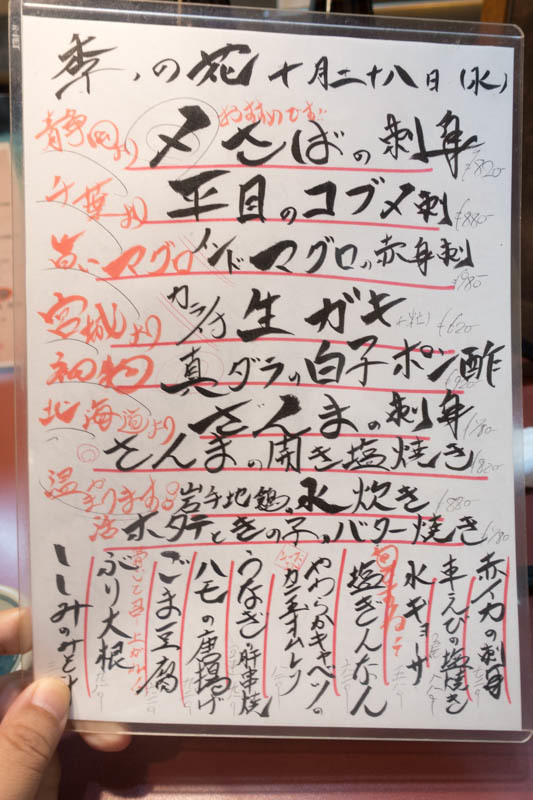 季の花 十月二十八日(水)
おすすめです
静岡より 〆さばの刺身 ¥820-
千葉より 平目のコブ〆刺 ¥880-
マグロ インドマグロの赤身刺 ¥980-
宮城より カラ付 生ガキ ¥620-
初物 真ダラの白子ポン酢
北海道より さんまの刺身 ¥780-
さんまの開き塩焼き ¥820-
温まります。岩手地鶏の水炊き ¥880-
活ホタテときの子のバター焼き ¥780-
赤イカの刺身
車えびの塩焼き
水ギョーザ
塩ぎんなん
やわらかキャベツの
カニ玉オムレツ
うなぎ肝串焼
ハモの唐揚げ
ごま豆腐
ぶり大根
しじみのみそ汁